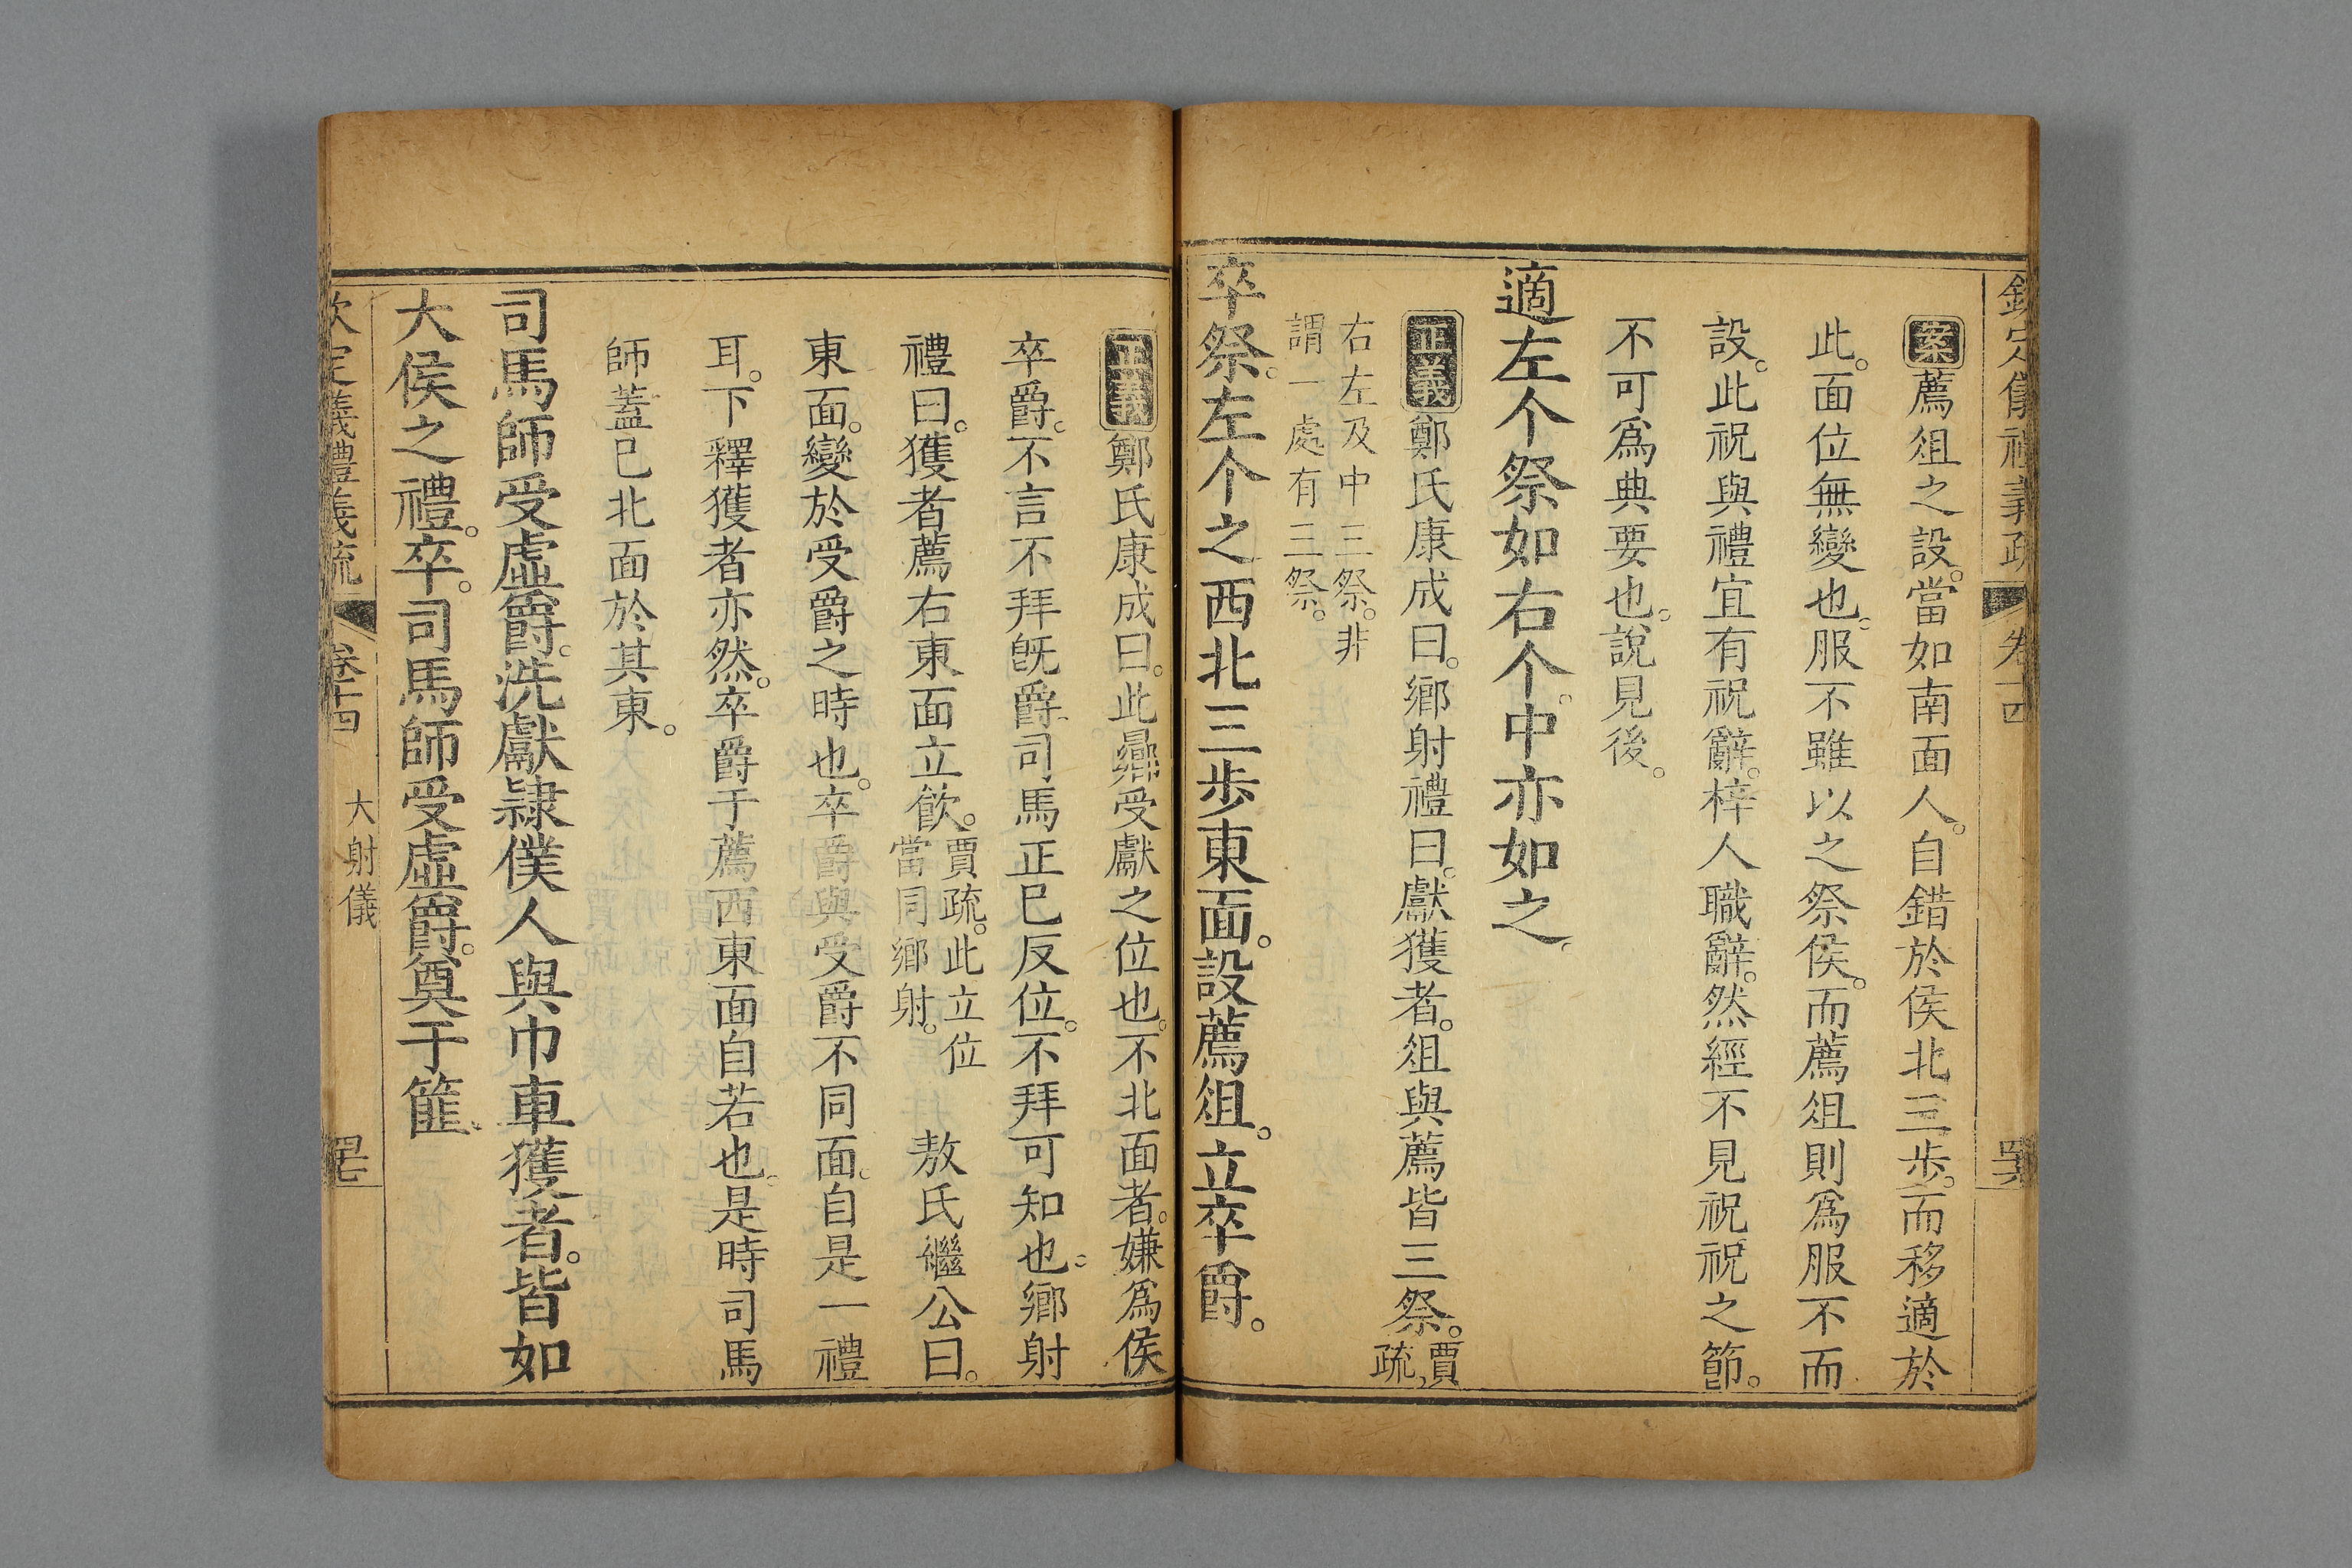 欽定儀禮義疏 卷十四
案薦俎之設。當如南面人。自錯於侯北三步。而移適於
此。面位無變也。服不雖以之祭侯。而薦俎則爲服不而
設。此祝與禮宜有祝辭。梓人職辭。然經不見祝祝之節。
不可爲典要也。說見後。
適左个祭如右个。中亦如之。
正義鄭氏康成曰。鄉射禮曰。獻獲者。俎與薦皆三祭。賈疏,
右左及中三祭。非
謂一處有三祭。
卒祭。左个之西北三步東面。設薦俎。立卒爵。
正義鄭氏康成曰。此鄉受獻之位也。不北面者。嫌爲侯
卒爵。不言不拜旣爵。司馬正巳反位。不拜可知也。鄉射
禮曰。獲者薦右東面立飮。賈疏。此立位
當同鄉射。 敖氏繼公曰。
東面。變於受爵之時也。卒爵與受爵不同面。自是一禮
耳。下釋獲者亦然。卒爵于薦西東面自若也。是時司馬
師蓋巳北面於其東。
司馬師受虛爵。洗獻隸僕人與巾車獲者。皆如
大侯之禮。卒。司馬師受虛爵。奠于篚。
欽定儀禮義疏 卷十四 大射儀